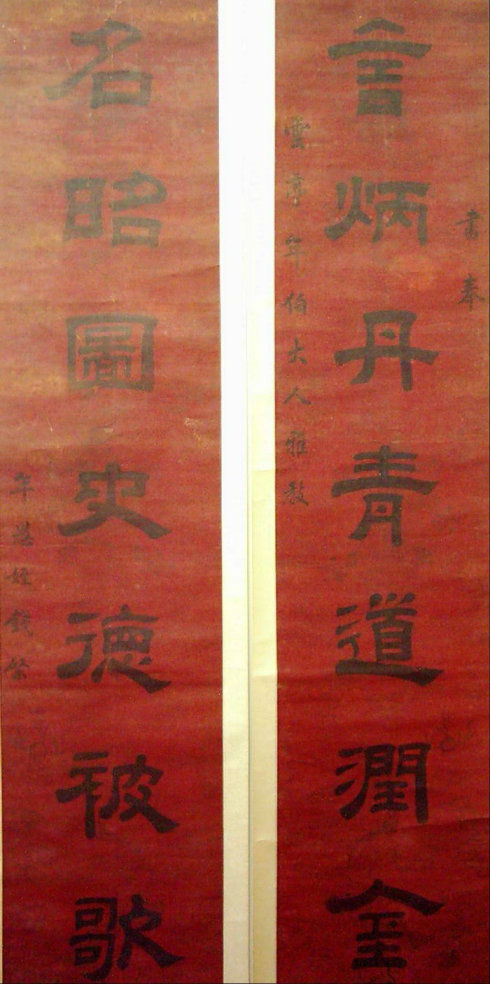 書奉
言炳丹青道潤金
雲亭年伯大人雅教
名昭圖史德被歌
年愚姪錢